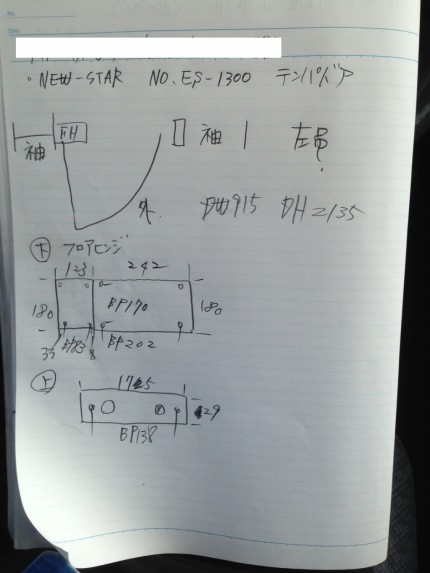 ・NEW-STAR NO.ES-1300 テンパドア
袖 FH 袖 左吊
外 DW915 DH2135
下 フロアヒンジ
123 242
180 BP170 180
33 BP83 8 BP202
上
175
29
BP138